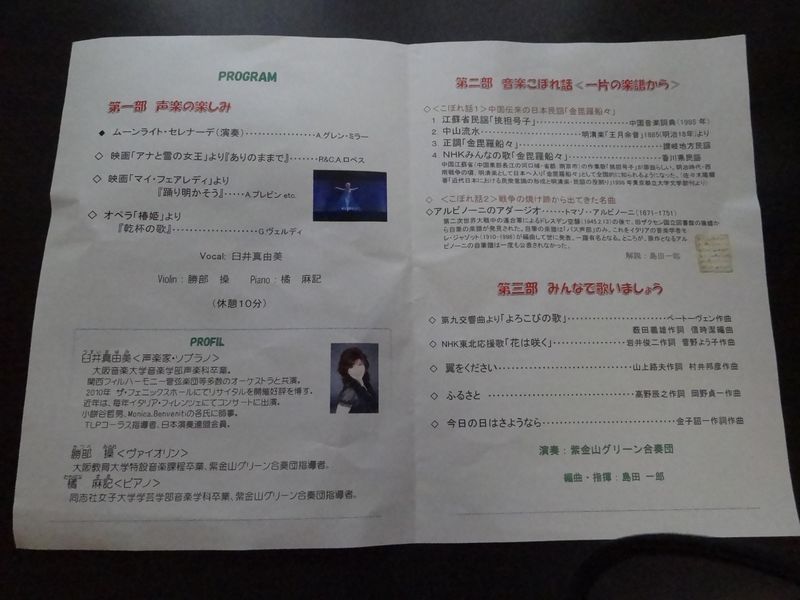 PROGRAM
第一部 声楽の楽しみ
◆ ムーンライト・セレナーデ(演奏)………………A.グレン・ミラー
◇ 映画「アナと雪の女王」より『ありのままで』………R&C.A.ロペス
◇ 映画「マイ・フェアレディ」より
『踊り明かそう』……A.プレビン etc.
◇ オペラ「椿姫」より
『乾杯の歌』………………G.ヴェルディ
Vocal: 臼井真由美
Violin:勝部 操 Piano:橘 麻記
(休憩10分)
PROFIL
臼井真由美<声楽家・ソプラノ>
大阪音楽大学音楽学部声楽科卒業。
関西フィルハーモニー管弦楽団等多数のオーケストラと共演。
2010年 ザ・フェニックスホールにてリサイタルを開催好評を博す。
近年は、毎年イタリア・フィレンツェにてコンサートに出演。
小餅谷哲男、Monica.Benvenitの各氏に師事。
TLPコーラス指導者、日本演奏連盟会員。
勝部 操<ヴァイオリン>
大阪教育大学特設音楽課程卒業、紫金山グリーン合奏団指導者。
橘 麻記<ピアノ>
同志社女子大学学芸学部音楽学科卒業、紫金山グリーン合奏団指導者。
第二部 音楽こぼれ話<一片の楽譜から>
◇<こぼれ話1>中国伝来の日本民謡「金毘羅船々」
1 江蘇省民謡「挑担号子」………………中国音楽詞典(1985年)
2 中山流水………………明清楽「王月余音」1885(明治18年)より
3 正調「金毘羅船々」………………讃岐地方民謡
4 NHKみんなの歌「金毘羅船々」………………香川県民謡
◇ <こぼれ話2>戦争の焼け跡から出てきた名曲
◇アルビノーニのアダージオ………トマゾ・アルビノーニ(1671-1751)
第二次世界大戦中の連合軍によるドレスデン空襲(1945.2.13)の後で、旧ザクセン国立図書館の廃墟か
ら自筆の楽譜が発見された。自筆の楽譜は「バス声部」のみ。これをイタリアの音楽学者モ
レ・ジャゾット(1910-1998)が編曲して世に発表。一躍有名となる。ところが、原作となるアル
ビノーニの自筆譜は一度も公表されなかった。
解説:島田一郎
第三部 みんなで歌いましょう
◇ 第九交響曲より「よろこびの歌」………………ベートーヴェン作曲
薮田義雄作詞 信時潔編曲
◇ NHK東北応援歌「花は咲く」………岩井俊二作詞 菅野よう子作曲
◇ 翼をください………………山上路夫作詞 村井邦彦作曲
◇ ふるさと ………………高野辰之作詞 岡野貞一作曲
◇ 今日の日はさようなら………………金子詔一作詞作曲
演奏:紫金山グリーン合奏団
編曲・指揮:島田 一郎